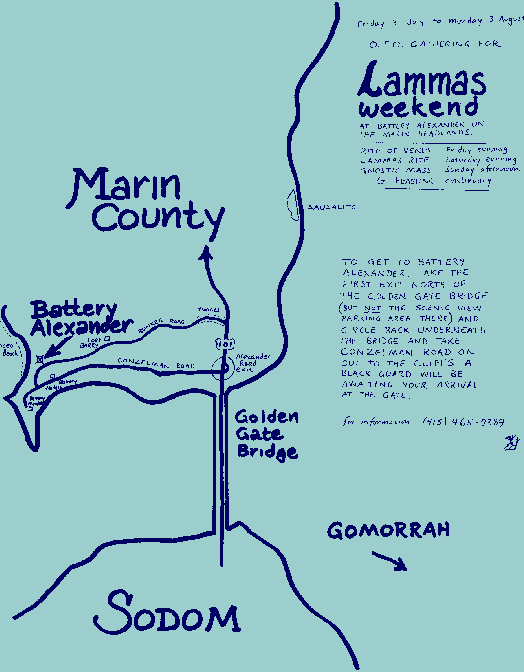 Friday 31 July to Monday 3 August
O.T.O. GATHERING FOR
Lammas
weekend
AT BATTERY ALEXANDER ON
THE MARIN HEADLANDS.
RITE OF VENUS Friday evening
LAMMAS RITE Saturday evening
GNOSTIC MASS Sunday afternoon
& FEASTING continuously
Marin
County
SAUSALITO
TO GET TO BATTERY
ALEXANDER, TAKE THE
FIRST EXIT NORTH OF
THE GOLDEN GATE BRIDGE
(BUT NOT THE SCENIC VIEW
PARKING AREA THERE) AND
CYCLE BACK UNDERNEATH
THE BRIDGE AND TAKE
CONZELMAN ROAD ON
OUT TO THE CLIFFS. A
BLACK GUARD WILL BE
AWAITING YOUR ARRIVAL
AT THE GATE.
for information (415)
Battery
Alexander
tunnel
BUNKER ROAD
FORT
BARRY
101
Alexander
Road
exit
CONZELMAN ROAD
Golden
Gate
Bridge
GOMORRAH
SODOM